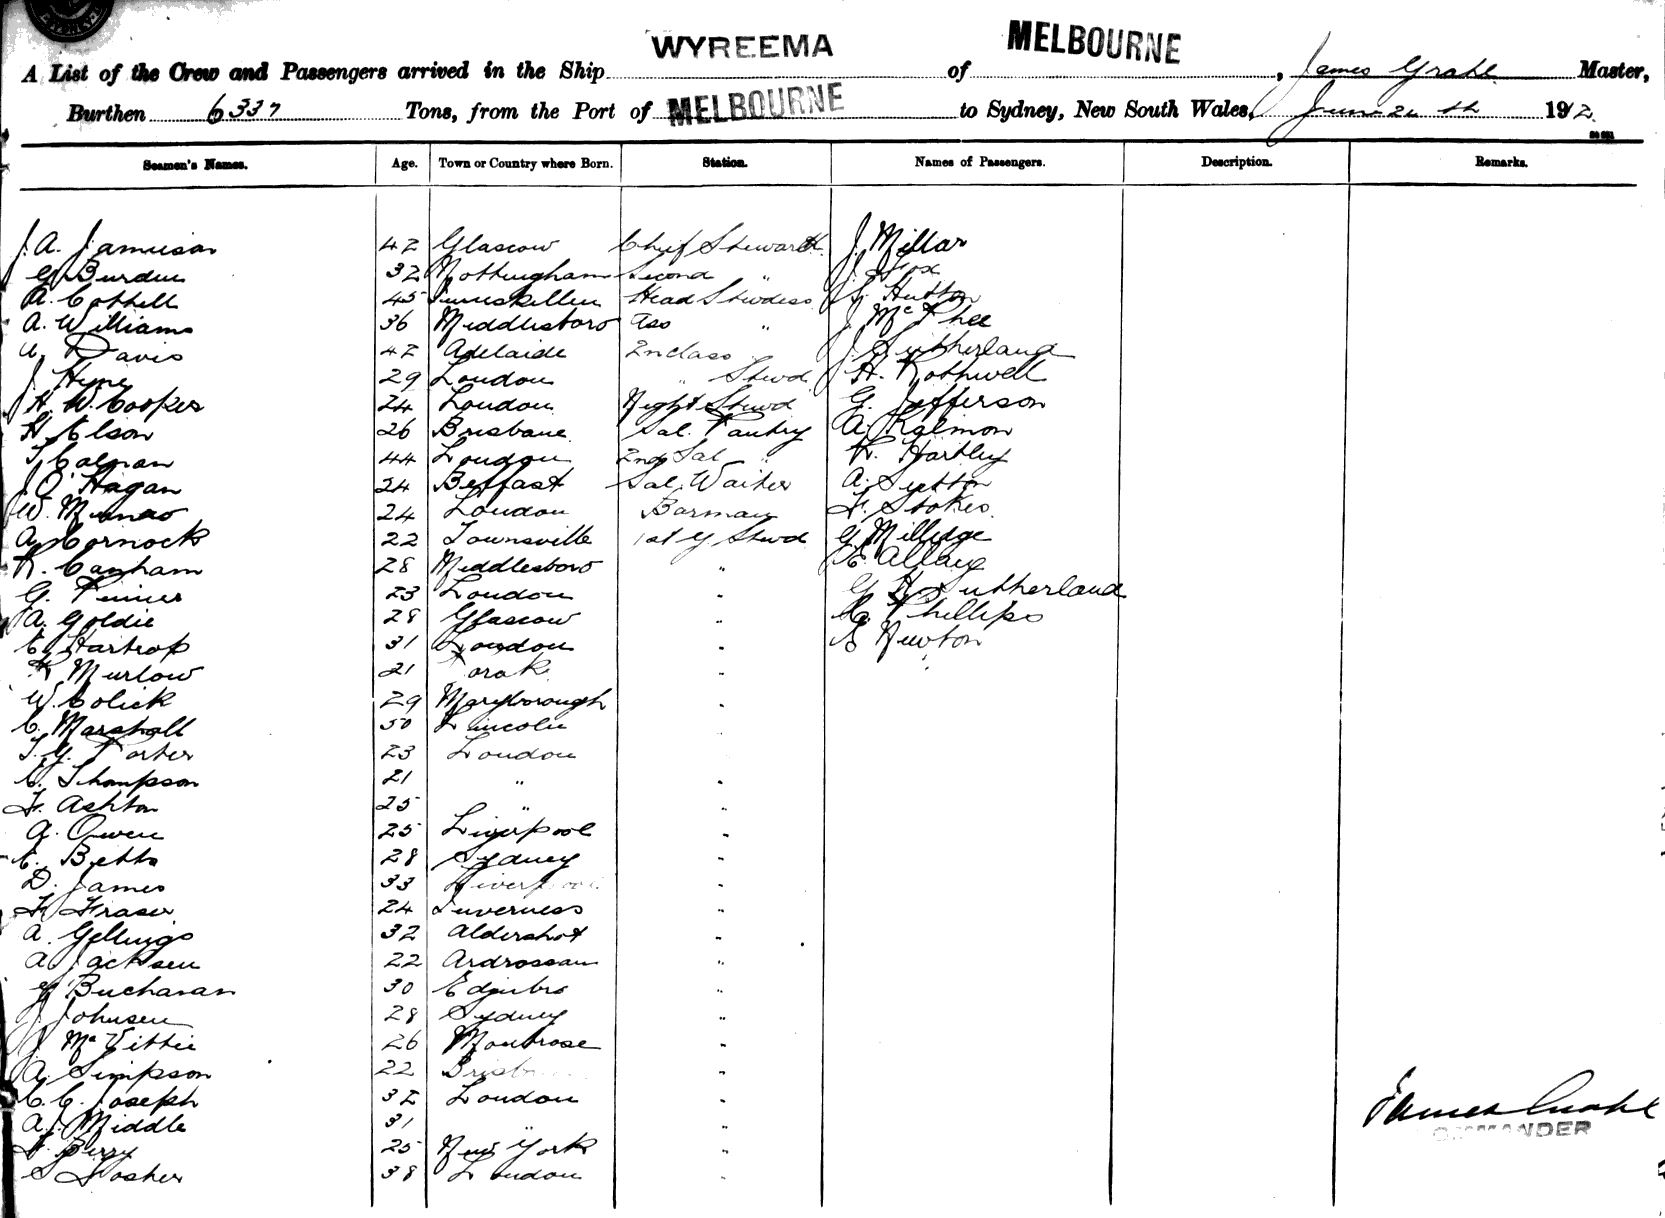 WYREEMA MELBOURNE
A List of the Crew and Passengers arrived in the Ship of , James Grahl Master,
Burthen 6337 Tons, from the Port of MELBOURNE to Sydney, New South Wales, June 1912
Seamen's Names. Age. Town or Country where Born. Station. Names of Passengers. Description. Remarks.
J. A. Jamieson 42 Glascow Chief Steward J. Millar
G. Burdin 32 Nottingham Second " J. Fox
A. Cottell 45 Inniskillen Head Stwdess J. G. Hutton
A. Williams 36 Middlesboro Ass " J McPhee
Davis 42 Adelaide 2nd class J. Sutherland
J. Hyne 29 London " Stwd H. Rothwell
H. W. Cooper 24 London Night Stwd G. Jefferson
H. Elson 26 Brisbane Sal. Pantry A. Kalmon
T. Colman 44 London 2nd Sal " K. Hartley
J. O'Hagan 24 Belfast Sal. Waiter A. Sutton
W. Munro 24 London Barman F. Stokes
A. Cornock 22 Townsville 1st G Stwd G. Milledge
K. Canham 28 Middlesboro " E
G. 23 London " G H Sutherland
A. Goldie 28 Glascow " C. Phillips
C. Hartrop 31 London " E Newton
Murlow 21 "
W. Colick 29 Maryborough "
C. Marshall 50 Lincoln "
T. G. Porter 23 London "
C. Thompson 21 " "
F. Ashton 25 " "
A. Owen 25 Liverpool "
C. Betts 28 Sydney "
D. James 33 Liverpool "
F. Fraser 24 Inverness "
A. Gellings 32 Aldershot "
A. Jacksen 22 Ardrossan "
G Buchanan 30 Edinbro "
J. Johnsen 28 Sydney "
J. McVittie 26 Montrose "
A. Simpson 22 "
C. C. Joseph 32 London "
A. J. Middle 31 " "
F. Berry 25 New York "
S Fosher 38 London "
James Grahl
COMMANDER